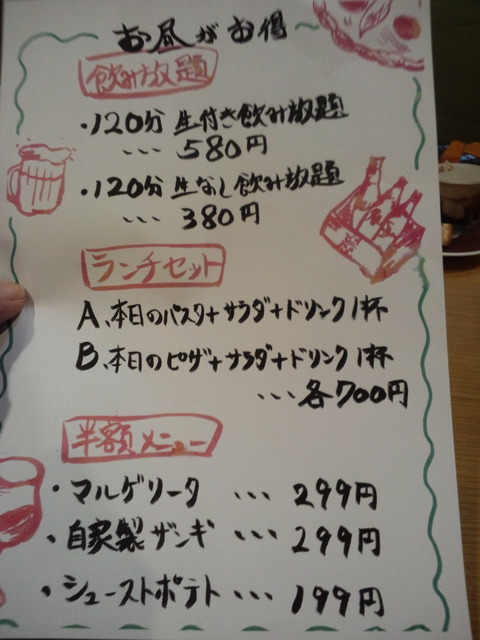 お昼がお得
飲み放題
・120分 生付き飲み放題
・・・ 580円
・120分 生なし飲み放題
・・・ 380円
ランチセット
A、本日のパスタ+サラダ+ドリンク1杯
B、本日のピザ+サラダ+ドリンク1杯
・・・各700円
半額メニュー
・マルゲリータ ・・・ 299円
・自家製ザンギ ・・・ 299円
・シューストポテト ・・・ 199円